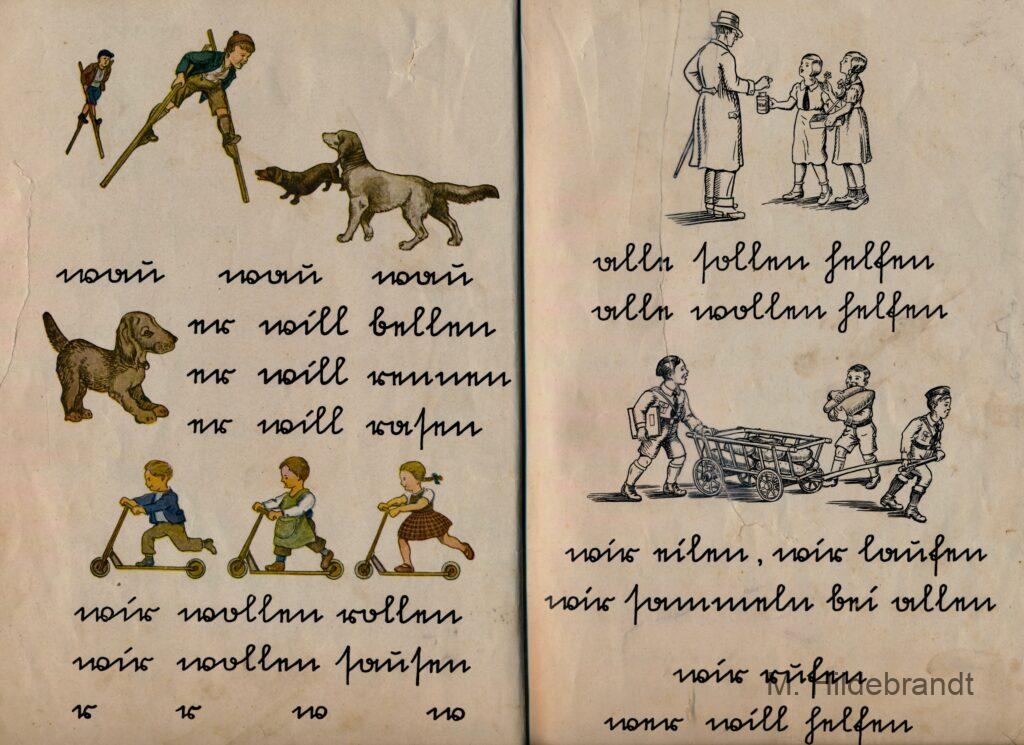 wau wau wau
er will bellen
er will rennen
er will rasen
wir wollen rollen
wir wollen sausen
r r w w
alle sollen helfen
alle wollen helfen
wir eilen, wir laufen
wir sammeln bei allen
wir rufen
M. Hildebrandt
wer will helfen